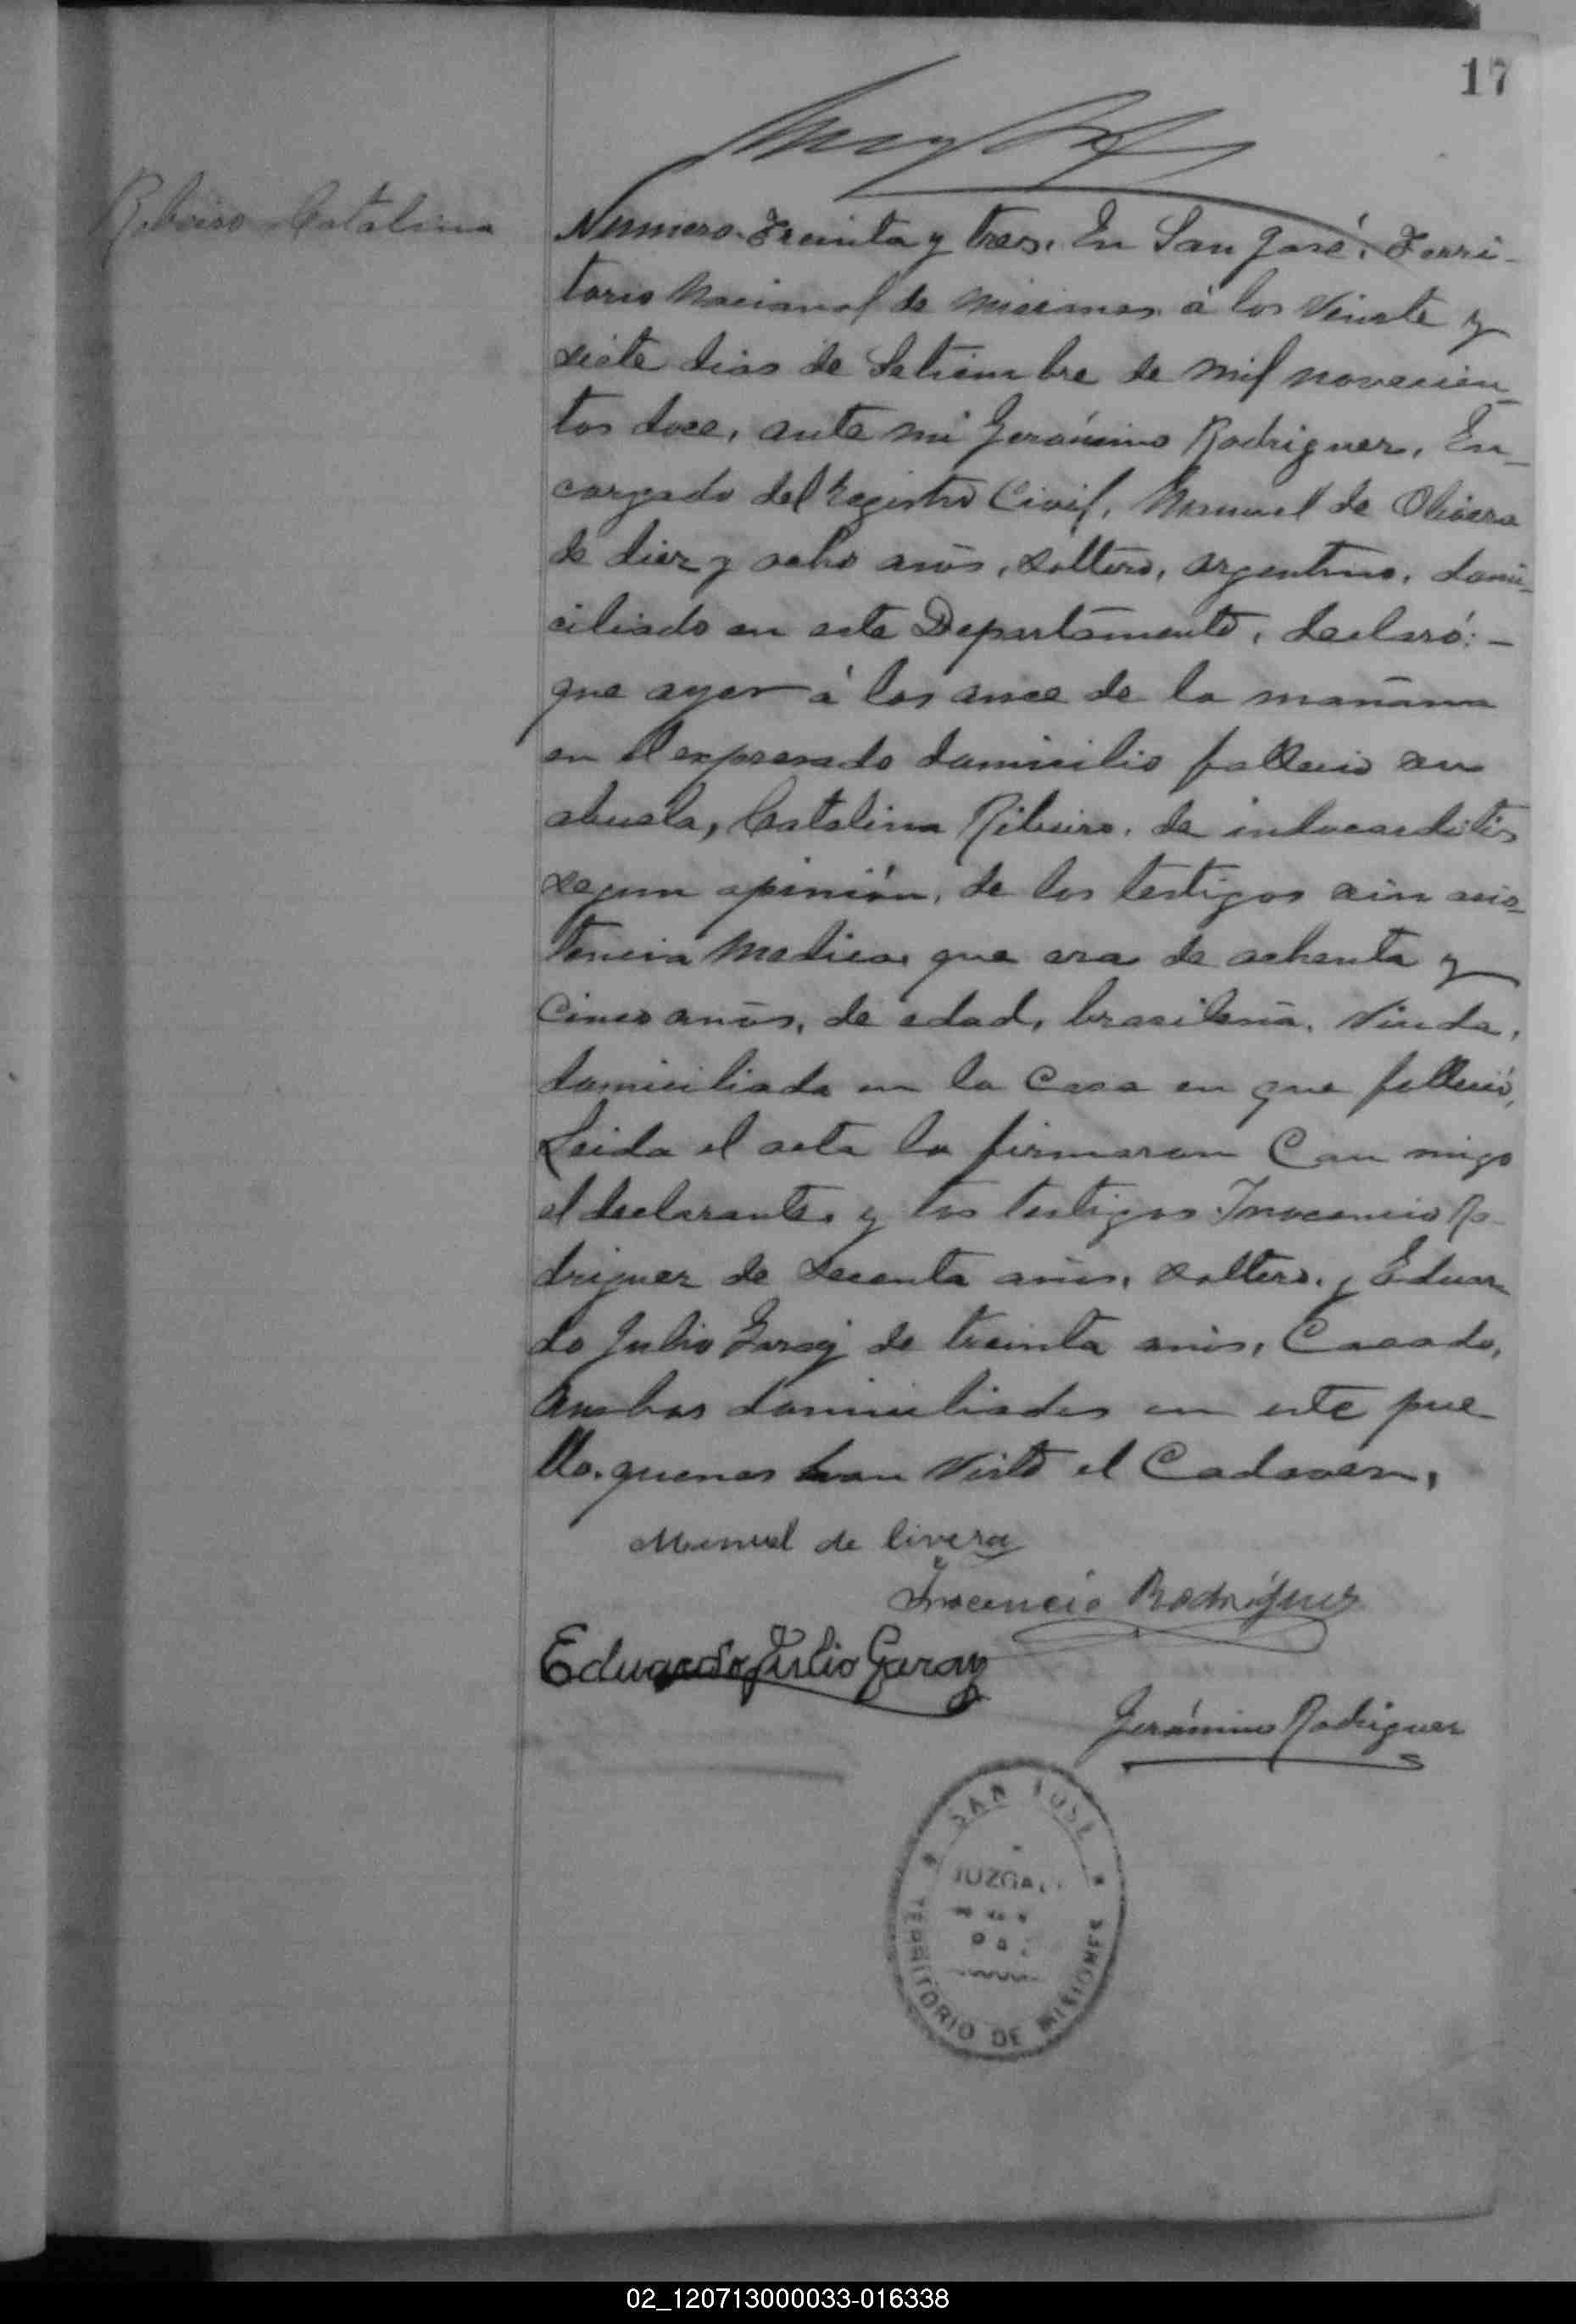 17
Ribeiro Catalina
Numero Treinta y tres. En San José, Terri-
torio Nacional de Misiones á los Veinte y
siete dias de Setiembre de mil novecien-
tos doce, ante mi Gerónimo Rodriguez, En-
cargado del Registro Civil, Manuel de Olivera
de diez y ocho años, soltero, argentino, domi-
ciliado en este Departamento, declaró: -
que ayer á las once de la mañana
en el expresado domicilio fallecio su
abuela, Catalina Ribeiro, de indocarditis
segun opinión, de los testigos sin asis-
tencia Medica, que era de ochenta y
Cinco años, de edad, brasileña, Viuda,
domiciliada en la Casa en que falleció,
Leida el acta la firmaron Con migo
el declarante, y los testigos Inocencio Ro-
driguez de secenta años, soltero, y Eduar
do Julio Garay de treinta años, Casado,
Ambos domiciliados en este pue
blo, quenes han Visto el Cadaver,
Manuel de livera
Inocencio Rodriguez
Eduardo Julio Garay
Gerónimo Rodriguez
SAN JOSE
JUZGA
TERRITORIO DE MISIONES
02_120713000033-016338